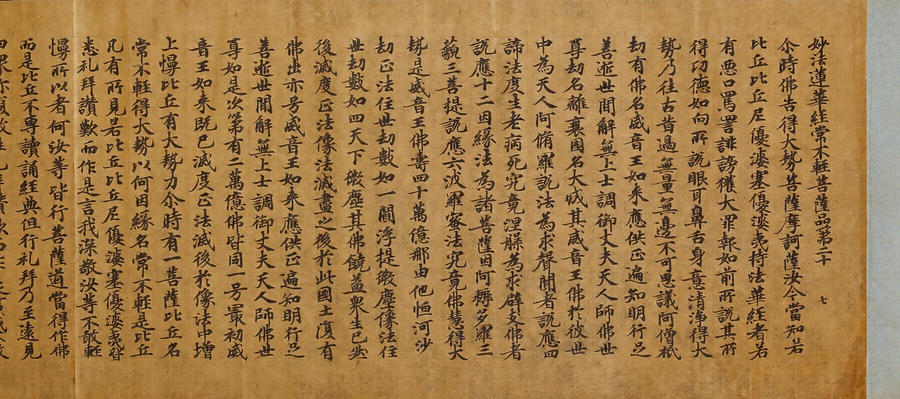 妙法蓮華經常不輕菩薩品第二十　七
尒時佛告得大勢菩薩摩訶薩汝今當知若
比丘比丘尼優婆塞優婆夷持法華經者若
有惡口罵詈誹謗獲大罪報如前所說其所
得功德如向所說眼耳鼻舌身意清淨得大
勢乃往古昔過無量無邊不可思議阿僧祇
劫有佛名威音王如來應供正遍知明行足
善逝世間解無上士調御丈夫天人師佛世
尊劫名離衰國名大成其威音王佛於彼世
中為天人阿脩羅說法為求聲聞者說應四
諦法度生老病死究竟涅槃為求辟支佛者
說應十二因緣法為諸菩薩因阿耨多羅三
藐三菩提說應六波羅蜜法究竟佛慧得大
勢是威音王佛壽四十萬億那由他恒河沙
劫正法住世劫數如一閻浮提微塵像法住
世劫數如四天下微塵其佛饒益眾生已然
後滅度正法像法滅盡之後於此國土復有
佛出亦号威音王如來應供正遍知明行足
善逝世間解無上士調御丈夫天人師佛世
尊如是次第有二萬億佛皆同一号最初威
音王如來既已滅度正法滅後於像法中增
上慢比丘有大勢力尒時有一菩薩比丘名
常不輕得大勢以何因緣名常不輕是比丘
凡有所見若比丘比丘尼優婆塞優婆夷皆
悉礼拜讚歎而作是言我深敬汝等不敢輕
慢所以者何汝等皆行菩薩道當得作佛
而是比丘不專讀誦經典但行礼拜乃至遠見